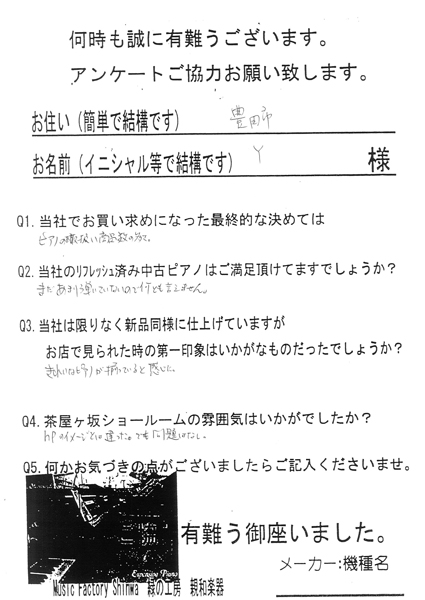 何時も誠に有難うございます。
アンケートご協力お願い致します。
お住い(簡単で結構です) 豊田市
お名前(イニシャル等で結構です) Y 様
Q1. 当社でお買い求めになった最終的な決めては
ピアノの取扱い商品数の多さ。
Q2. 当社のﾘﾌﾚｯｼｭ済み中古ピアノはご満足頂けてますでしょうか?
まだあまり弾いていないので何とも言えません。
Q3. 当社は限りなく新品同様に仕上げていますが
お店で見られた時の第一印象はいかがなものだったでしょうか?
きれいなピアノが揃っていると感じた。
Q4. 茶屋ヶ坂ショールームの雰囲気はいかがでしたか?
HPのイメージとは違った。でも問題はなし。
Q5. 何かお気づきの点がございましたらご記入くださいませ。
有難う御座いました。
メーカー:機種名
Expensive Piano
Music Factory Shinwa 緑の工房 親和楽器